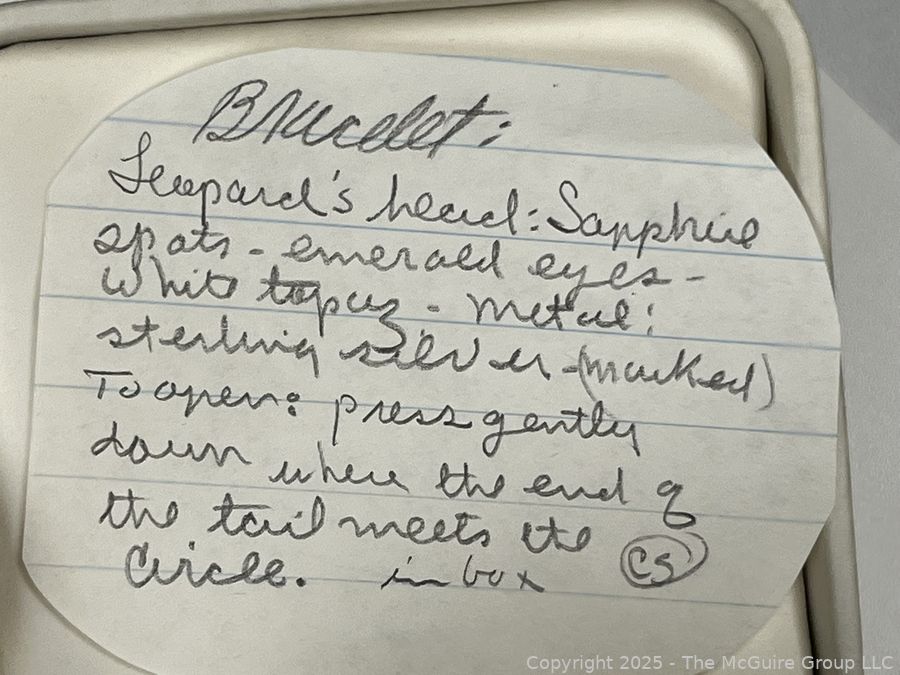 Bracelet:
Leopard's head: Sapphire
spots - emerald eyes -
White topaz - Metal:
sterling silver - (marked)
To open: press gently
down where the end of
the tail meets the
Circle. in box CS
Copyright 2025 - The McGuire Group LLC